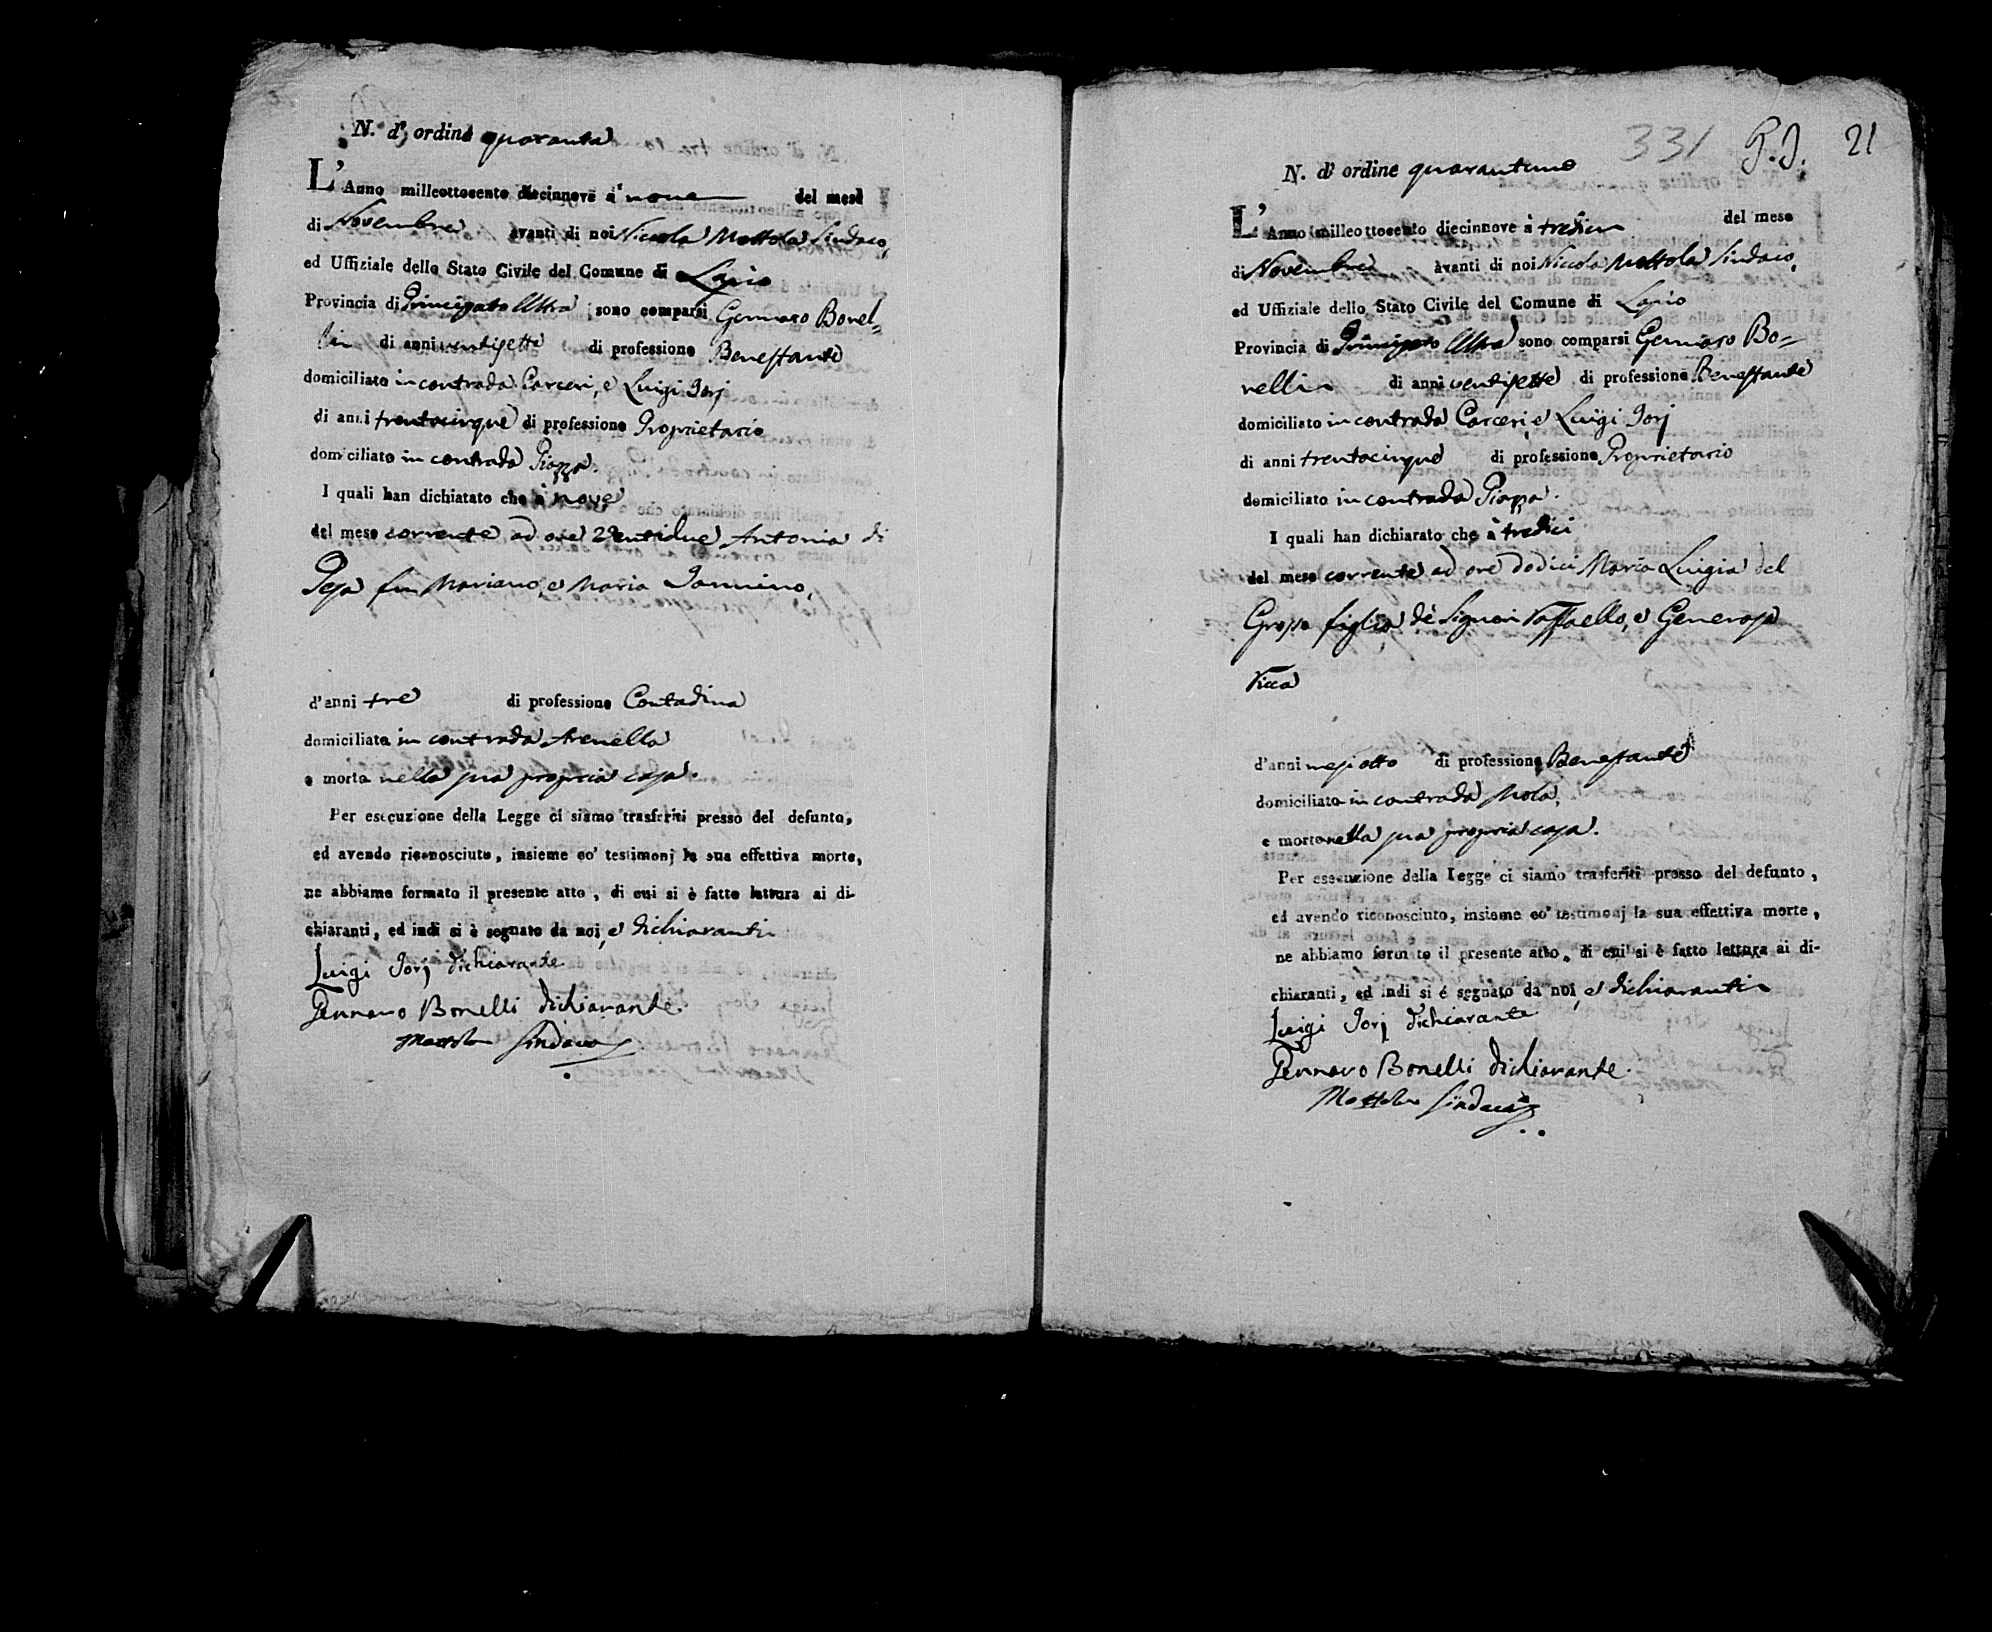 N. d'ordine quaranta
L'Anno milleottocento diecinnove à nove del mese
di Novembre avanti di noi Nicola Mottola Sindaco,
ed Uffiziale dello Stato Civile del Comune di Lapio
Provincia di Principato Ultra sono comparsi Gennaro Bonel=
li di anni ventisette di professione Benestante
domiciliato in contrada Carceri, e Luigi Jorj
di anni trentacinque di professione Proprietario
domiciliato in contrada Piazza.
I quali han dichiatato che à nove
del mese corrente ad ore Ventidue Antonia di
fu Mariano, e Maria Iannino,
d'anni tre di professione Contadina
domiciliata in contrada Arenella
e morta nella sua propria casa.
Per esecuzione della Legge ci siamo trasferiti presso del defunto,
ed avendo riconosciuto, insieme co' testimonj la sua effettiva morte,
ne abbiamo formato il presente atto, di cui si è fatto lettura ai di-
chiaranti, ed indi si è segnato da noi, e dichiaranti
Luigi Jorj dichiarante
Gennaro Bonelli dichiarante
Mottola Sindaco
331 21
N. d'ordine quarantuno
L'Anno milleottocento diecinnove à tredici del mese
di Novembre avanti di noi Niccola Mottola Sindaco,
ed Uffiziale dello Stato Civile del Comune di Lapio
Provincia di Principato Ultra sono comparsi Gennaro Bo=
nelli di anni ventisette di professione Benestante
domiciliato in contrada Carceri, e Luigi Jorj
di anni trentacinque di professione Proprietario
domiciliato in contrada Piazza.
I quali han dichiarato che à tredici
del mese corrente ad ore dodici Maria Luigia del
Grosso figlia de' Signori Raffaello, e Generosa
d'anni mesi otto di professione Benestante
domiciliata in contrada Mola,
e morto nella sua propria casa.
Per esecuzione della Legge ci siamo trasferiti presso del defunto,
ed avendo riconosciuto, insieme co' testimonj la sua effettiva morte,
ne abbiamo formato il presente atto, di cui si è fatto lettura ai di-
chiaranti, ed indi si é segnato da noi, e dichiaranti
Luigi Jorj dichiarante
Gennaro Bonelli dichiarante.
Mottola Sindaco